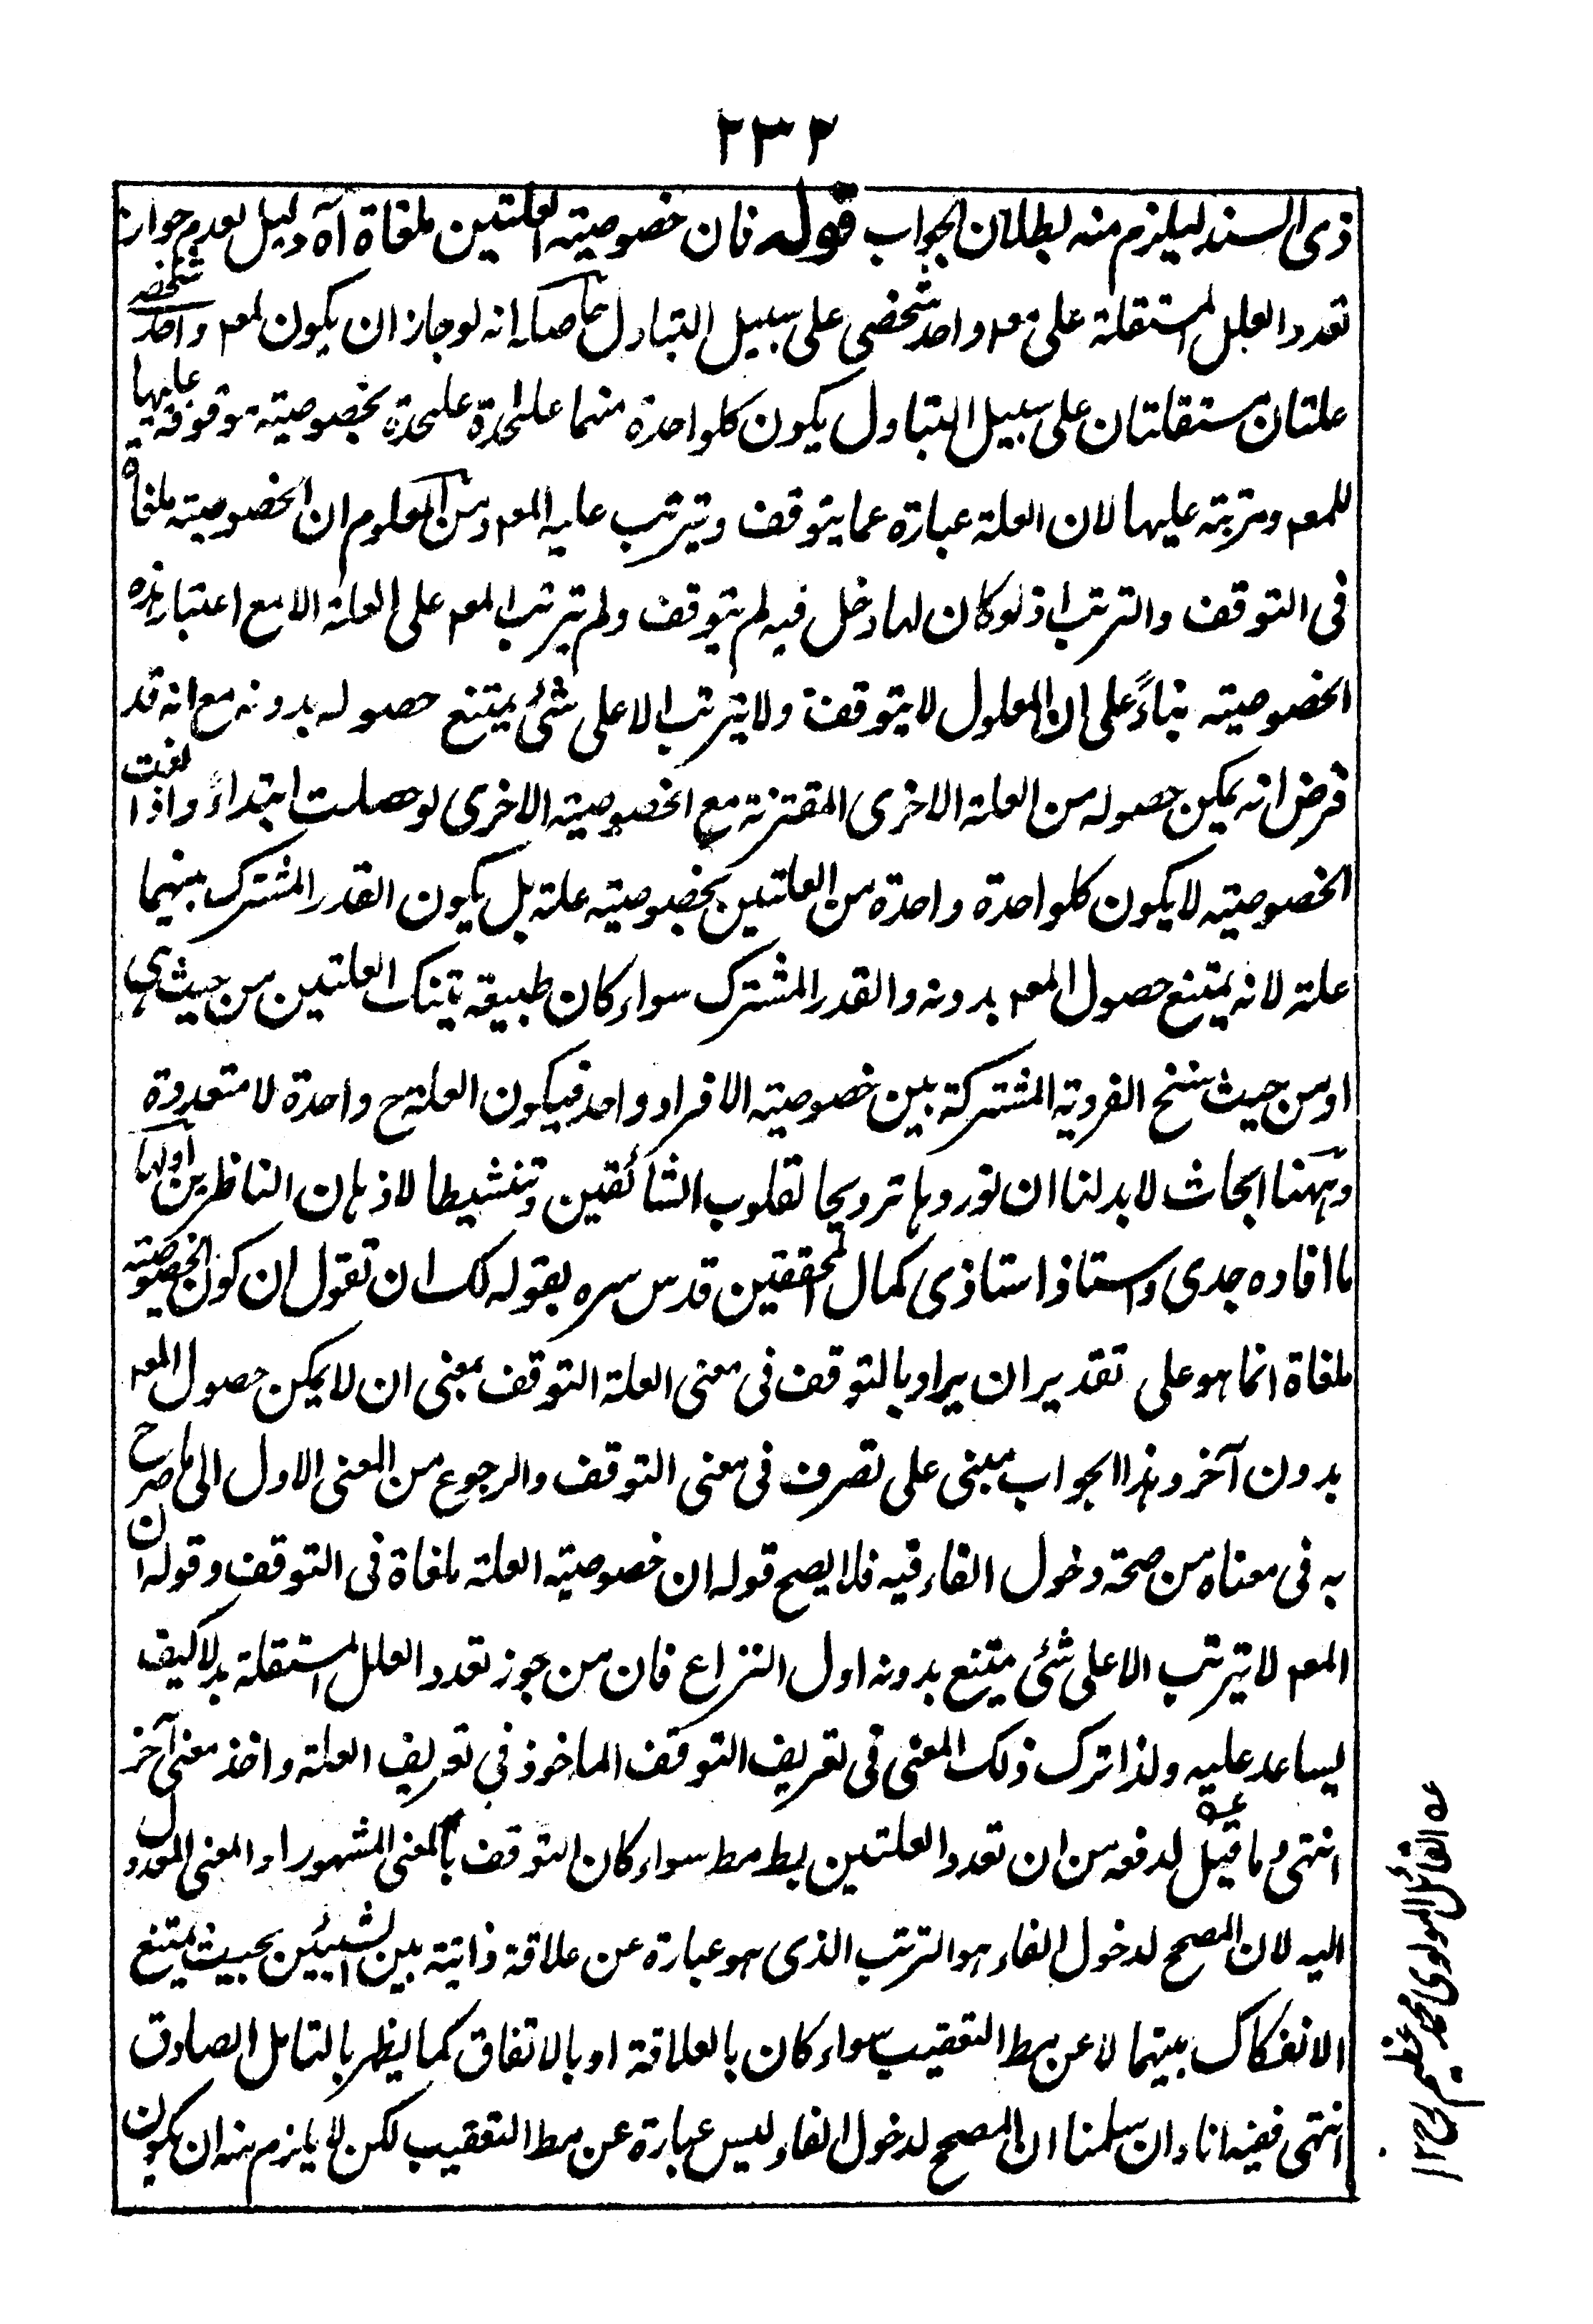 ٢٣٢
ذى السند ليلزم منه بطلان الجواب قوله فان خصوصية العلتين ملغاة آه دليل لعدم جواز
تعدد العلل المستقلة على معہ واحد شخصى على سبيل التبادل حاصله انه لو جاز ان يكون لمعہ واحد شخصى
علتان مستقلتان على سبيل التبادل يكون كلواحدة منهما علة عليحدة بخصوصية موقوفة عليها
للمعہ ومترتبة عليها لان العلة عبارة عما يتوقف ويترتب عليه المعہ ومن المعلوم ان الخصوصية ملغاة
فى التوقف والترتب اذ لو كان لها دخل فيه لم يتوقف ولم يترتب المعہ على العلة الا مع اعتبار هذه
الخصوصية بناءً على ان المعلول لا يتوقف ولا يترتب الا على شئ يمتنع حصوله بدونه مع انه قد
فرض انه يمكن حصوله من العلة الاخرى المقترنة مع الخصوصية الاخرى لو حصلت ابتداءً واذا لغت
الخصوصية لا يكون كلواحدة واحدة من العلتين بخصوصية علة بل يكون القدر المشترك بينهما
علة لانه يمتنع حصول المعہ بدونه والقدر المشترك سواء كان طبيعة تينك العلتين من حيث هى
او من حيث سنخ الفردية المشتركة بين خصوصية الافراد واحد فيكون العلة ح واحدة لا متعددة
وههنا ابحاث لا بد لنا ان نوردها ترويحا لقلوب الشائقين وتنشيطا لاذهان الناظرين اولها
ما افاده جدى واستاذ استاذى كمال المحققين قدس سره بقوله لك ان تقول ان كون الخصوصية
ملغاة انما هو على تقدير ان يراد بالتوقف فى معنى العلة التوقف بمعنى ان لا يمكن حصول المعہ
بدون آخر وهذا الجواب مبنى على تصرف فى معنى التوقف والرجوع من المعنى الاول الى ما صرح
به فى معناه من صحة دخول الفاء فيه فلا يصح قوله ان خصوصية العلة ملغاة فى التوقف وقوله ان
المعہ لا يترتب الا على شئ يمتنع بدونه اول النزاع فان من جوز تعدد العلل المستقلة بدلا كيف
يساعد عليه ولذا ترك ذلك المعنى فى تعريف التوقف الماخوذ فى تعريف العلة واخذ معنى آخر
انتهى وما قيل عه لدفعه من ان تعدد العلتين بط مط سواء كان التوقف بالمعنى المشهور او المعنى المعدول
اليه لان المصحح لدخول الفاء هو الترتب الذى هو عبارة عن علاقة ذاتية بين الشيئين بحيث يمتنع
الانفكاك بينهما لا عن مط التعقيب سواء كان بالعلاقة او بالاتفاق كما يظهر بالتامل الصادق
انتهى ففيه انا وان سلمنا ان المصحح لدخول الفاء ليس عبارة عن مط التعقيب لكن لا يلزم منه ان يكون
عه القائل المولوى محمد عظيم ١٢